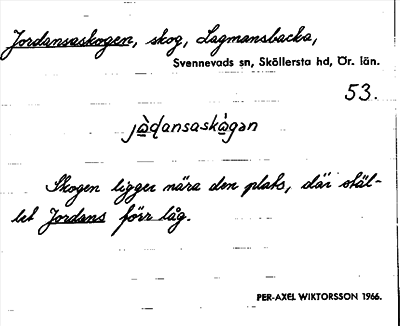 Jordansaskogen, skog, Lagmansbacka,
Svennevads sn, Sköllersta hd, Ör. län.
53.
jà̱ɖansaskå̀gən
Skogen ligger nära den plats, där stäl-
let Jordans förr låg.
PER-AXEL WIKTORSSON 1966.